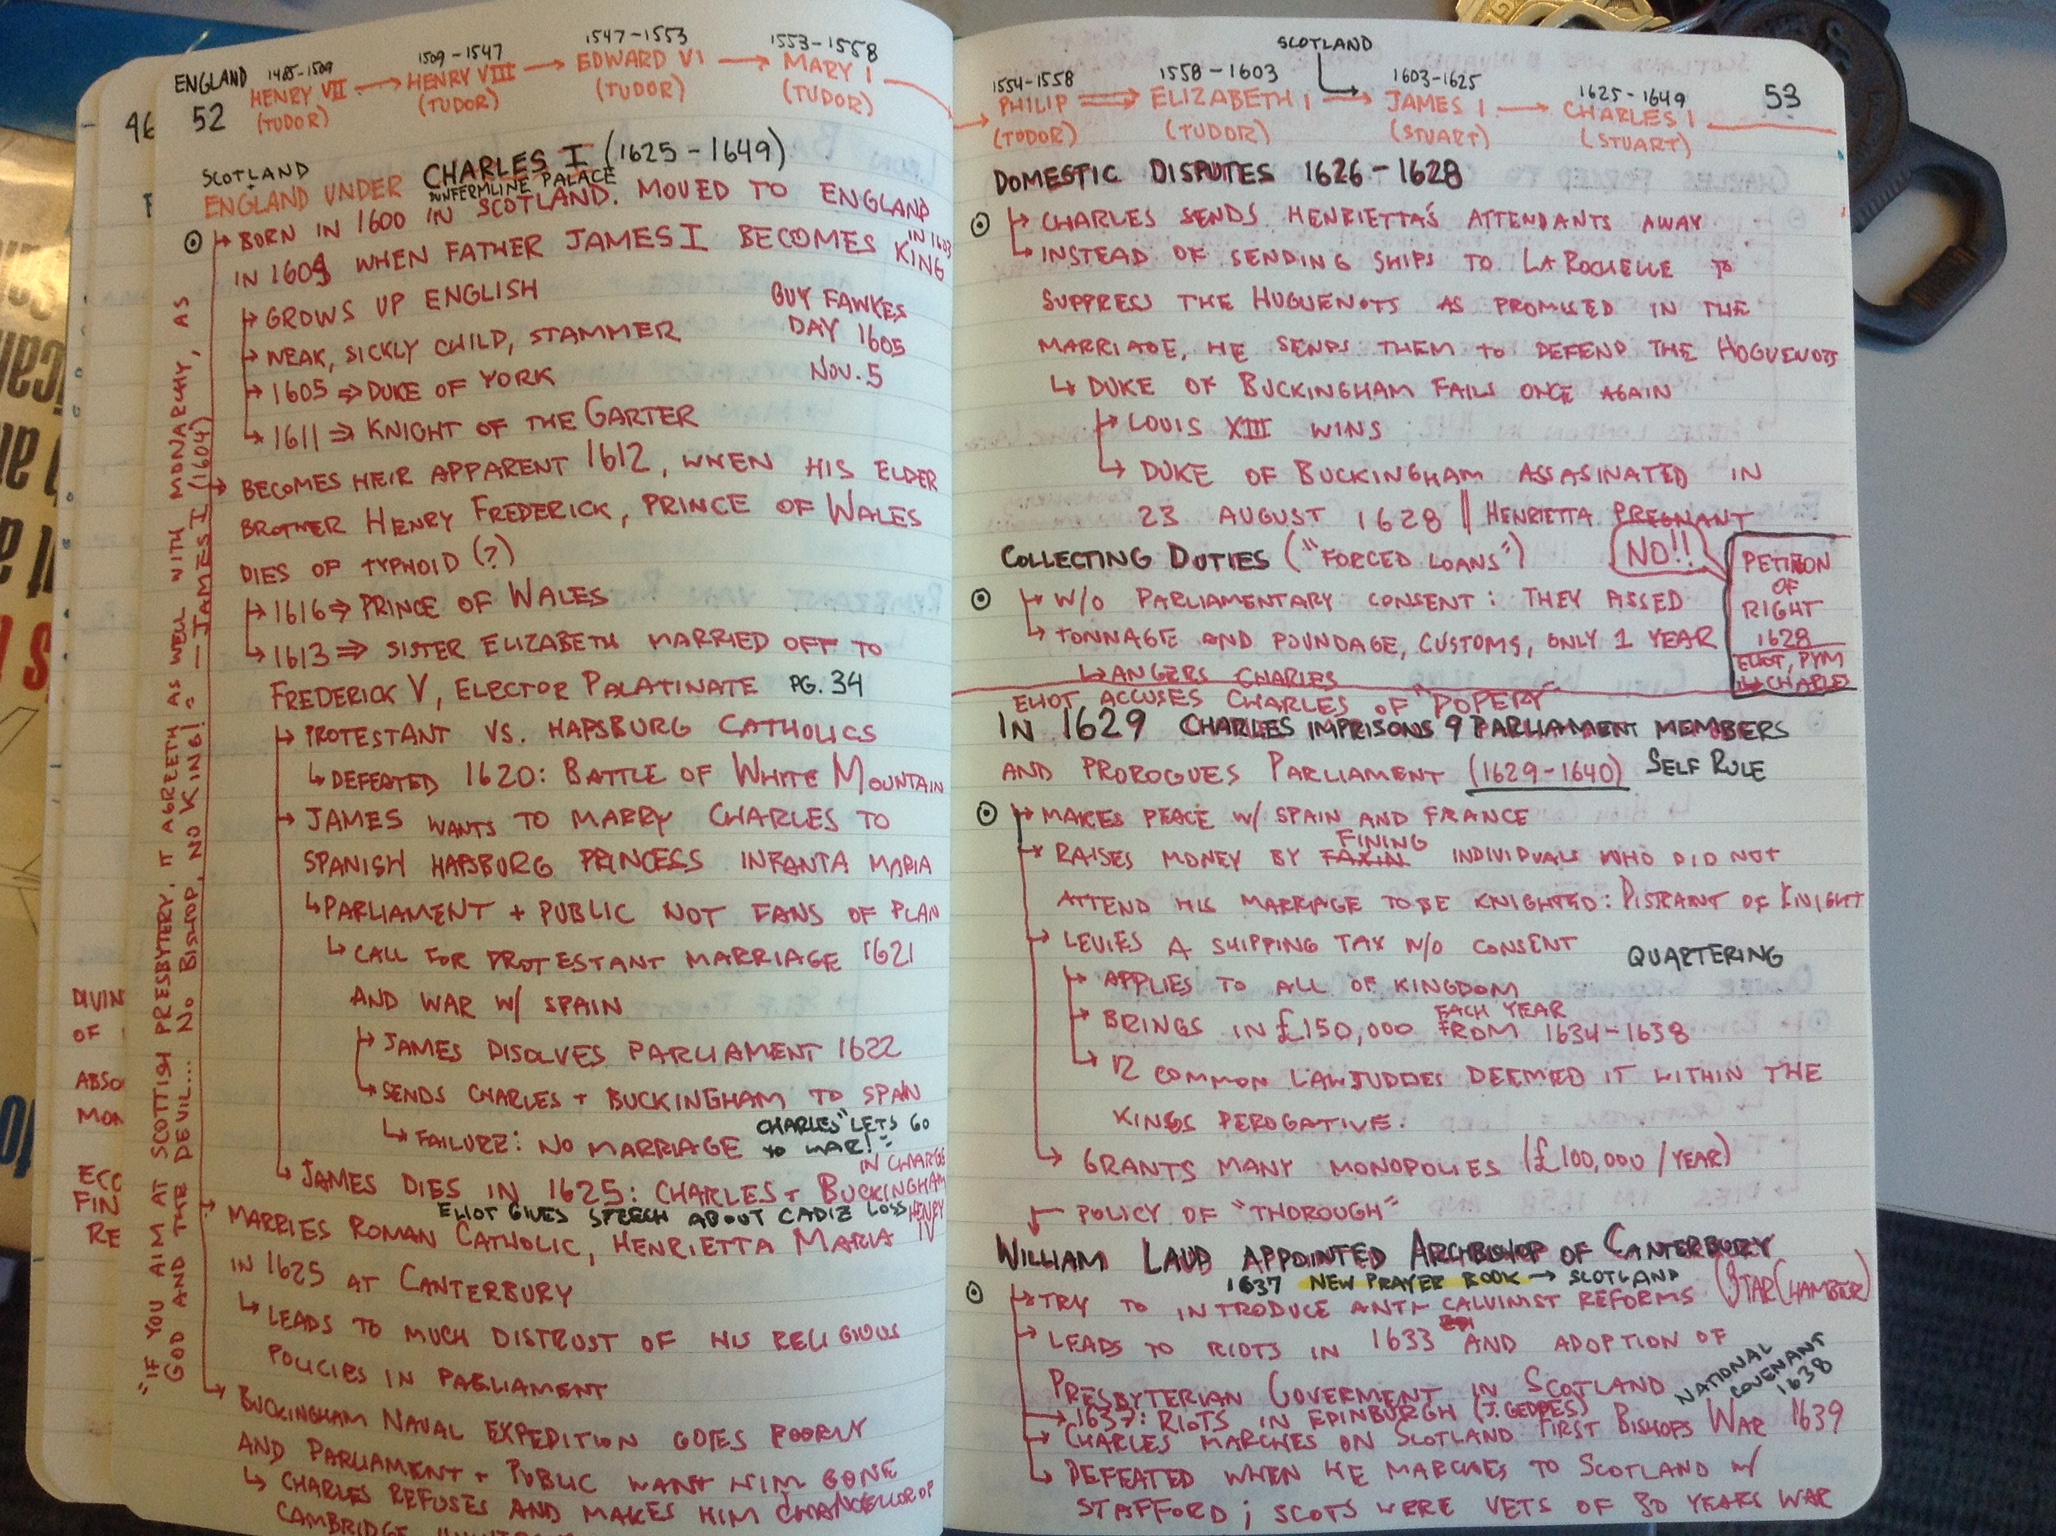 ENGLAND 1485-1509 1509-1547 1547-1553 1553-1558
52 HENRY VII → HENRY VIII → EDWARD VI → MARY I
(TUDOR) (TUDOR) (TUDOR) (TUDOR)
SCOTLAND
ENGLAND UNDER CHARLES I (1625-1649)
DUNFERMLINE PALACE
BORN IN 1600 IN SCOTLAND. MOVED TO ENGLAND
IN 1603
IN 1603 WHEN FATHER JAMES I BECOMES KING
GROWS UP ENGLISH
WEAK, SICKLY CHILD, STAMMER
1605 ⇒ DUKE OF YORK
1611 ⇒ KNIGHT OF THE GARTER
GUY FAWKES
DAY 1605
NOV. 5
BECOMES HEIR APPARENT 1612, WHEN HIS ELDER
BROTHER HENRY FREDERICK, PRINCE OF WALES
DIES OF TYPHOID (?)
1616 ⇒ PRINCE OF WALES
1613 ⇒ SISTER ELIZABETH MARRIED OFF TO
FREDERICK V, ELECTOR PALATINATE PG. 34
PROTESTANT VS. HAPSBURG CATHOLICS
DEFEATED 1620: BATTLE OF WHITE MOUNTAIN
JAMES WANTS TO MARRY CHARLES TO
SPANISH HAPSBURG PRINCESS INFANTA MARIA
PARLIAMENT + PUBLIC NOT FANS OF PLAN
CALL FOR PROTESTANT MARRIAGE 1621
AND WAR W/ SPAIN
JAMES DISOLVES PARLIAMENT 1622
SENDS CHARLES + BUCKINGHAM TO SPAN
FAILURE: NO MARRIAGE CHARLES "LETS GO
TO WAR!"
IN CHARGE
JAMES DIES IN 1625: CHARLES + BUCKINGHAM
ELIOT GIVES SPEECH ABOUT CADIZ LOSS HENRY
MARRIES ROMAN CATHOLIC, HENRIETTA MARIA IV
IN 1625 AT CANTERBURY
LEADS TO MUCH DISTRUST OF HIS RELIGIOUS
POLICIES IN PARLIAMENT
BUCKINGHAM NAVAL EXPEDITION GOES POORLY
AND PARLIAMENT + PUBLIC WANT HIM GONE
CHARLES REFUSES AND MAKES HIM CHANCELLOR OF
CAMBRIDGE
"IF YOU AIM AT SCOTTISH PRESBYTERY, IT AGREETH AS WELL WITH MONARCHY, AS
GOD AND THE DEVIL... NO BISHOP, NO KING!" — JAMES I (1604)
46
DIVIN
OF
ABSO
MON
ECC
FIN
RE
SCOTLAND
1554-1558 1558-1603 1603-1625 1625-1649 53
PHILIP ⇒ ELIZABETH I → JAMES I → CHARLES I
(TUDOR) (TUDOR) (STUART) (STUART)
DOMESTIC DISPUTES 1626-1628
CHARLES SENDS HENRIETTA'S ATTENDANTS AWAY
INSTEAD OF SENDING SHIPS TO LA ROCHELLE TO
SUPPRESS THE HUGUENOTS AS PROMISED IN THE
MARRIAGE, HE SENDS THEM TO DEFEND THE HUGUENOTS
DUKE OF BUCKINGHAM FAILS ONCE AGAIN
LOUIS XIII WINS
DUKE OF BUCKINGHAM ASSASINATED IN
23 AUGUST 1628 || HENRIETTA PREGNANT
COLLECTING DUTIES ("FORCED LOANS")
NO!!
PETITION
OF
RIGHT
1628
ELIOT, PYM
CHARLES
W/O PARLIAMENTARY CONSENT: THEY ASSED
TONNAGE AND POUNDAGE, CUSTOMS, ONLY 1 YEAR
ANGERS CHARLES
ELIOT ACCUSES CHARLES OF "POPERY"
IN 1629 CHARLES IMPRISONS 9 PARLIAMENT MEMBERS
AND PROROGUES PARLIAMENT (1629-1640) SELF RULE
MAKES PEACE W/ SPAIN AND FRANCE
FINING
RAISES MONEY BY INDIVIDUALS WHO DID NOT
ATTEND HIS MARRIAGE TO BE KNIGHTED: DISTRAINT OF KNIGHT
LEVIES A SHIPPING TAX W/O CONSENT
QUARTERING
APPLIES TO ALL OF KINGDOM
EACH YEAR
BRINGS IN £150,000 FROM 1634-1638
12 COMMON LAW JUDGES DEEMED IT WITHIN THE
KINGS PEROGATIVE.
GRANTS MANY MONOPOLIES (£100,000/YEAR)
POLICY OF "THOROUGH"
WILLIAM LAUD APPOINTED ARCHBISHOP OF CANTERBURY
1637 NEW PRAYER BOOK → SCOTLAND
TRY TO INTRODUCE ANTI-CALVINIST REFORMS (STAR CHAMBER)
LEADS TO RIOTS IN 1633 AND ADOPTION OF
PRESBYTERIAN GOVERMENT IN SCOTLAND
NATIONAL
COVENANT
1638
1637: RIOTS IN EDINBURGH (J. GEDDES)
CHARLES MARCHES ON SCOTLAND FIRST BISHOPS WAR 1639
DEFEATED WHEN HE MARCHES TO SCOTLAND W/
STAFFORD; SCOTS WERE VETS OF 30 YEARS WAR